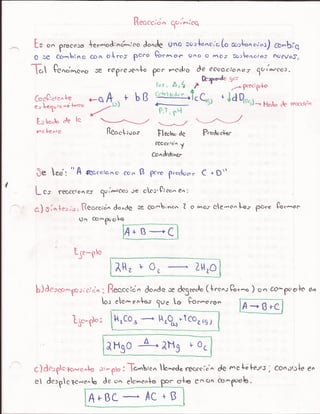 Reacción química
Es un proceso termodinámico donde una sustancia (o sustancias) cambia
o se combina con otras para formar una o mas sustancias nuevas.
Tal fenómeno se representa por medio de ecuaciones químicas.
Desprende gas
luz, Δ, ϟ
precipita
Coeficiente estequiométrico
aA + bB
catalizador
cC(g) + ↓dD(s)
Modo de reacción
P, T, pH
Estado de la materia
Reactivos
Flecha de reacción y condiciones
Productos
Se lee: "A reacciona con B para producir C + D"
Las reacciones químicas se clasifican en:
a) síntesis: Reacción donde se combinan 2 o mas elementos para formar
un compuesto
A + B → C
Ejemplo
2H₂ + O₂ → 2H₂O
b) descomposición: Reacción donde se degrada (transforma) un compuesto en
los elementos que lo formaron
A → B + C
Ejemplo:
H₂CO₃ → H₂O(l) + CO₂(g)
2MgO Δ→ 2Mg + O₂
c) desplazamiento simple: También llamada reacción de metátesis; consiste en
el desplazamiento de un elemento por otro en un compuesto.
A + BC → AC + B